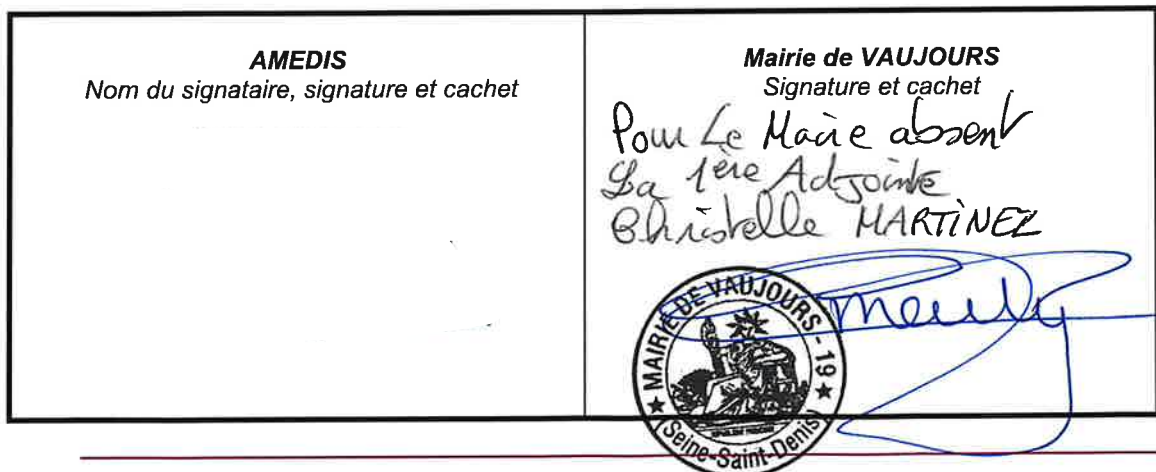 AMEDIS
Nom du signataire, signature et cachet
Mairie de VAUJOURS
Signature et cachet
Pour Le Maire absent
La 1ère Adjointe
Christelle MARTINEZ
MAIRIE DE VAUJOURS - 19
Seine-Saint-Denis